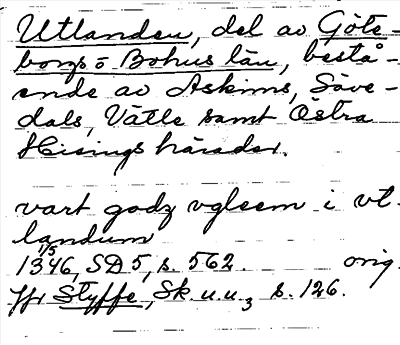 Utlanden, del av Göte-
borgs o Bohus län, bestå-
ende av Askims, Säve-
dals, Vätle samt Östra
Hisings härader.
vart godz vgleem i vt-
landum
1/5
1346, SD 5, s. 562. orig.
Jfr Styffe, Sk.u.u3 s. 126.